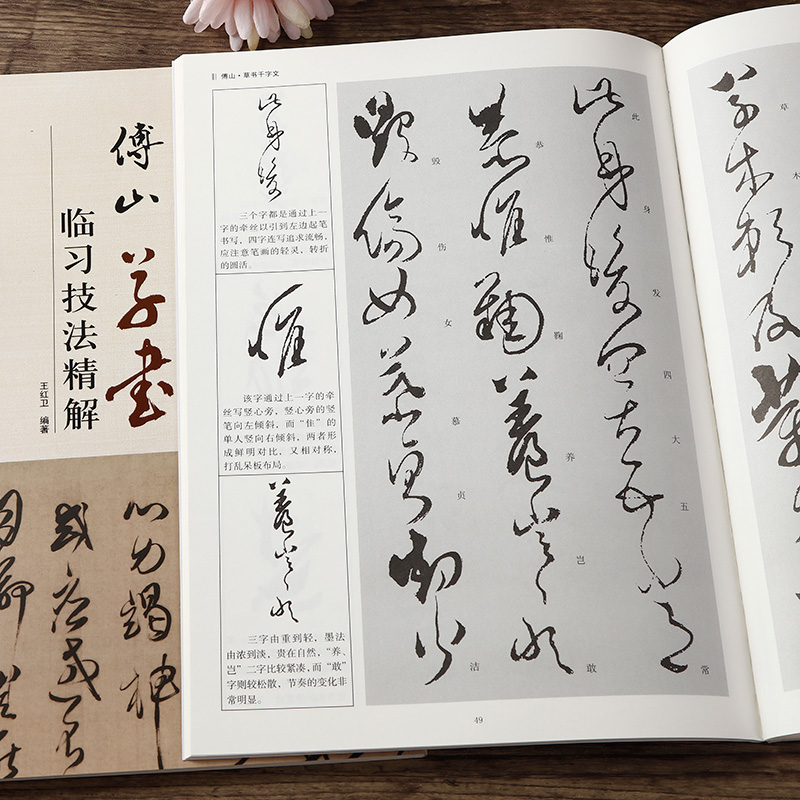 傅山
草书
临习技法精解
王红卫 编著
心力竭
傅山·草书千字文
此身发
三个字都是通过上一
字的牵丝以引到左边起笔
书写，四字连写追求流畅，
应注意笔画的轻灵，转折
的圆活。
惟
该字通过上一字的牵
丝写竖心旁，竖心旁的竖
笔向左倾斜，而“隹”的
单人竖向右倾斜，两者形
成鲜明对比，又相对称，
打乱呆板布局。
养岂敢
三字由重到轻，墨法
由浓到淡，贵在自然，“养、
岂”二字比较紧凑，而“敢”
字则较松散，节奏的变化非
常明显。
此身发四大五常
此
身
发
四
大
五
常
恭惟鞠养岂敢
恭
惟
鞠
养
岂
敢
毁伤女慕贞洁
毁
伤
女
慕
贞
洁
49
草木赖及万
草
木